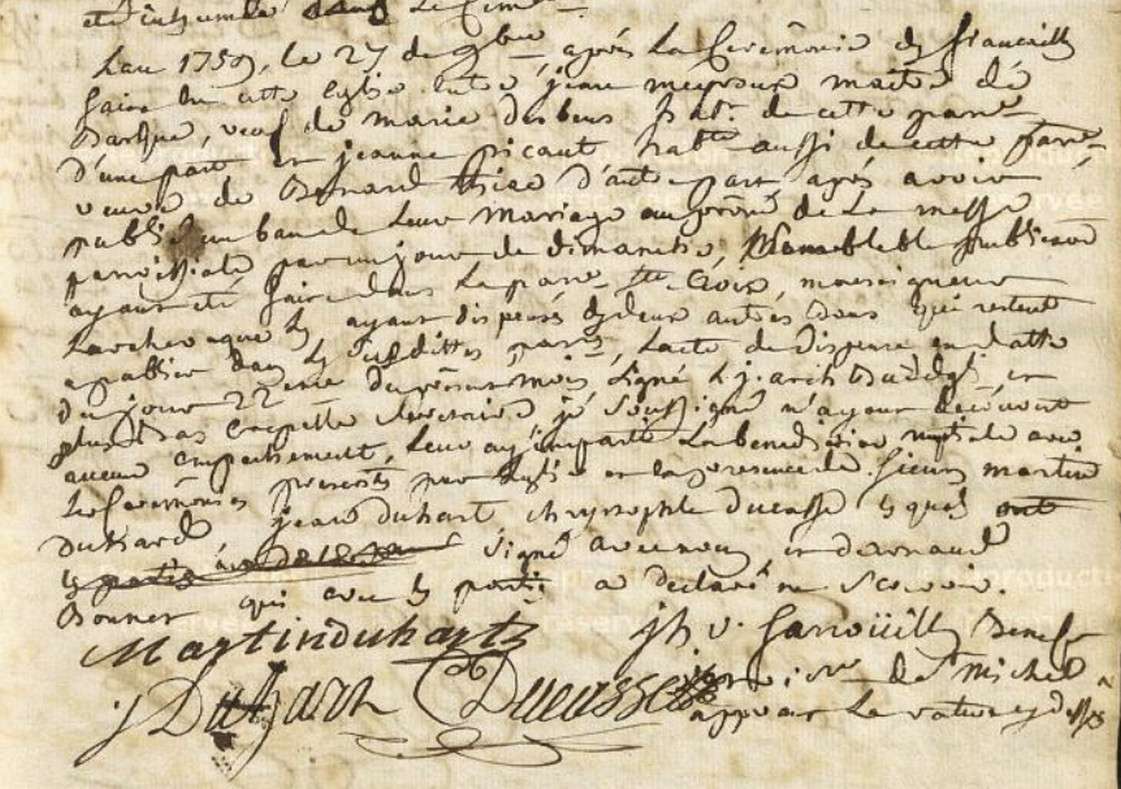 et inhumée dans le Cim.re
L'an 1759, le 27 de 9bre, après la Cérémonie des fiancailles
faite en cette Eglise entre jean maitre de
Barque, veuf de marie habt. de cette parr.e
d'une part et jeanne picaut habte aussi de cette parr.e,
veuve de Bernard d'autre part, après avoir
publié un ban de leur mariage au prône de la messe
paroissiale par un jour de dimanche, semblable publication
ayant été faite dans la parr.e Ste Croix, monseigneur
Larcheveque les ayant dispensés des deux autres bans qui restent
a publier dans les susdittes parr.es, lacte de dispense en datte
du jour 22eme du présent mois, signé L. j. arch. et
plus bas secretaire je soussigné n'ayant decouvert
aucun empechement, leur ay imparti la benediction nuptiale avec
les Ceremonies prescrites par l'eglise en la presence de sieurs martin
Duhard, jean duhart chrysostple ducasse lesquels ont
les parties signé avec nous, et
Bonnet qui avec les parties a declaré ne scavoir.
Martinduhartz jh v. Benef
j Duhart Ducasse vic.re de St Michel
approuvant la rature cy dessus